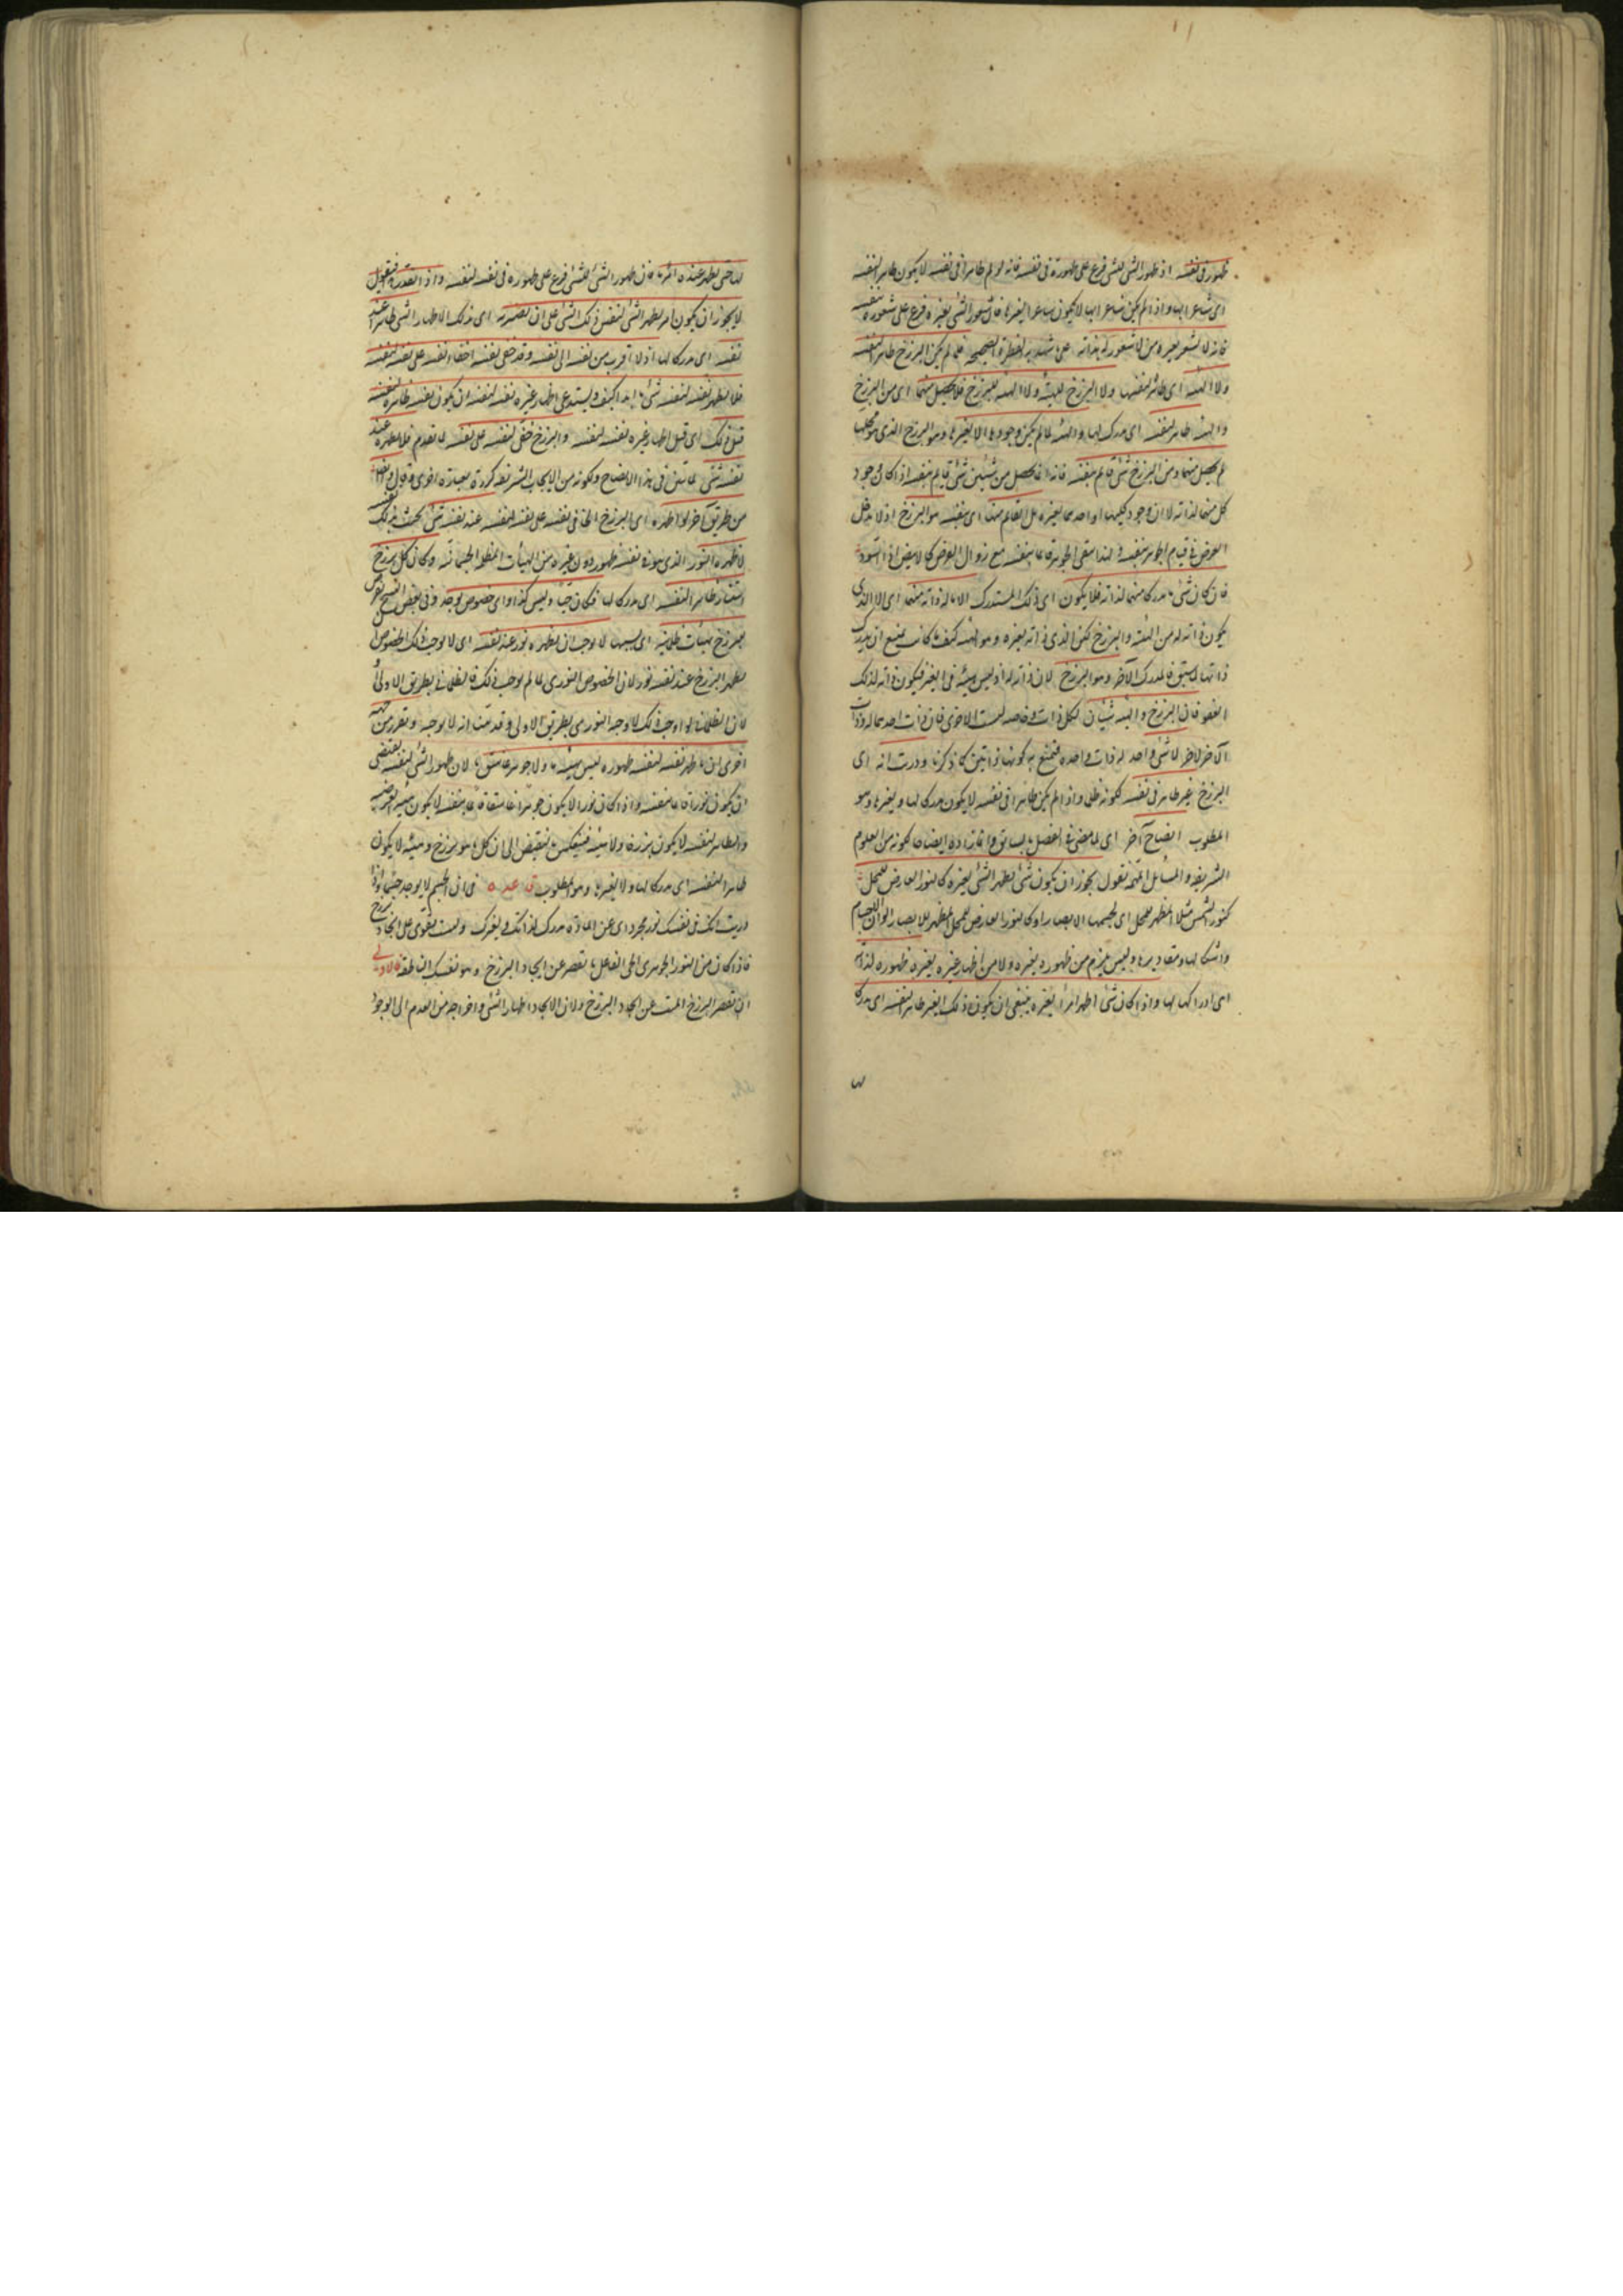 ظهور فى نفسه اذ ظهور الشئ للشئ فرع على ظهوره فى نفسه فانه لو لم ظاهرا فى نفسه لا يكون ظاهرا لنفسه
اى شاعرا بها واذا لم يكن شاعرا بها لا يكون شاعرا بغيرها فان شعور الشئ بغيره فرع على شعوره بنفسه
فانه لا يشعر بغيره من لا شعور له بذاته على شهد به الفطرة الصحيحه فلما لم يكن البرزخ ظاهرا لنفسه
ولا الهيئه اى ظاهرة لنفسها ولا البرزخ للهيئه ولا الهيئه للبرزخ فلا يحصل منهما اى من البرزخ
والهيئه ظاهر لنفسه اى مدرك لها والهيئه لما لم يكن وجودها الا لغيرها وهو البرزخ الذى هو محلها
لم يحصل منها ومن البرزخ شئ قائم بنفسه فانه انما يحصل من شيئين شئ قائم بنفسه اذا كان وجود
كل منهما لذاته لا ان وجود كليهما او احدهما لغيره بل القائم منهما اى بنفسه هو البرزخ اذ لا دخل
العرض فى قيام الجوهر بنفسه ولهذا يبقى الجوهر قائما بنفسه مع زوال العرض كالابيض اذا اسود
فان كان شئ مدركا منهما لذاته فلا يكون اى ذلك المستدرك الا ما له ذاته منهما اى لا الذى
يكون ذاته له من الهيئه والبرزخ لكن الذى ذاته لغيره وهو الهيئه كيف كانت يمتنع ان يدرك
ذاتها لما سبق فالمدرك الآخر وهو البرزخ لان ذاته له اذ ليس هيئه فى الغير فيكون ذاته لذلك
الغير فان البرزخ والهيئه شيئان لكل ذات خاصه ليست للاخرى فان ذات احدهما له وذات
الآخر لآخر لا شئ واحد له ذات واحده فيمتنع به كونها ذاتين كما ذكرنا ودريت انه اى
البرزخ غير ظاهر فى نفسه لكونه ظلى واذا لم يكن ظاهرا فى نفسه لا يكون مدركا لها ولغيرها وهو
المطلوب ايضاح آخر اى لما مضى فى الفصل السابق وانما زاده ايضاحا لكونه من العلوم
الشريفه والمسائل المهمه نقول يجوز ان يكون شئ يظهر الشئ لغيره كالنور العارض للمحل
كنور الشمس مثلا المظهر للمحل اى لجسمها الابصار او كالنور العارض للمحل المظهر للابصار الوان الاجسام
واشكالها ومقاديرها وليس يلزم من ظهوره لغيره ولا من اظهار غيره لغيره ظهوره لذاته
اى ادراكها لها واذا كان شئ اظهر امرا لغيره ينبغى ان يكون ذلك الغير ظاهرا لنفسه اى مدركا
لها
لها حتى يظهر عنده امر ما فان ظهور الشئ للشئ فرع على ظهوره فى نفسه لنفسه واذا تقرر هذا فنقول
لا يجوز ان يكون امر يظهر الشئ لنفس ذلك الشئ على ان يصير به اى بذلك الاظهار الشئ ظاهرا عند
نفسه اى مدركا لها اذ لا اقرب من نفسه الى نفسه وقد خفى نفسه اخفاء نفسه على نفسه لنفسه
فلا يظهر نفسه لنفسه شئ ابدا كيف ويستدعى اظهار غيره نفسه لنفسه ان يكون نفسه ظاهرة لنفسه
قبل ذلك اى قبل اظهار غيره نفسه لنفسه والبرزخ خفى لنفسه على نفسه لما تقدم فلا يظهره عند
نفسه شئ لما تبين فى هذا الايضاح ولكونه من الابحاث الشريفه كرره بعبارة اخرى وقال ونقول
من طريق آخر لو اظهره اى البرزخ الخافى نفسه على نفسه لنفسه عند نفسه شئ بحيث يدرك نفسه
لاظهره النور الذى هو فى نفسه ظهور دون غيره من الهيئات المظلمه الجسمانيه وكان كل برزخ
استنار ظاهرا لنفسه اى مدركا لها فكان حيا وليس كذا واى خصوص يوجد وفى بعض النسخ يفرض
للبرزخ بهيئات ظلمانيه اى بسببها لا يوجب ان يظهره نور عند نفسه اى لا يوجب ذلك الخصوص ان
يظهر البرزخ عند نفسه نور لان الخصوص النورى لما لم يوجب ذلك فالظلمانى بطريق الاولى
لان الظلمانى لو اوجب ذلك لاوجبه النورى بطريق الاولى وقد تبين انه لا يوجبه وبتقرير من جهه
اخرى ان ما ظهر نفسه لنفسه ظهوره ليس بهيئه ما ولا جوهر غاسق ما لان ظهور الشئ لنفسه يقتضى
ان يكون نورا قائما بنفسه واذا كان نورا لا يكون جوهرا غاسقا قائما بنفسه لا يكون هيئه لغيره
والظاهر لنفسه لا يكون برزخا ولا هيئه فينعكس بالنقيض الى ان كل ما هو برزخ وهيئه لا يكون
ظاهرا لنفسه اى مدركا لها ولا لغيرها وهو المطلوب قاعده فى ان الجسم لا يوجد جسما واذا
دريت انك فى نفسك نور مجرد اى عن المادة مدرك لذاتك ولغيرك ولست تقوى على ايجاد برزخ
فاذا كان من النور الجوهرى الحى الفاعل ما يقصر عن ايجاد البرزخ وهو نفسك الناطقه فالاولى
ان يقصر البرزخ الميت عن ايجاد البرزخ ولان الايجاد اظهار الشئ واخراجه من العدم الى الوجود